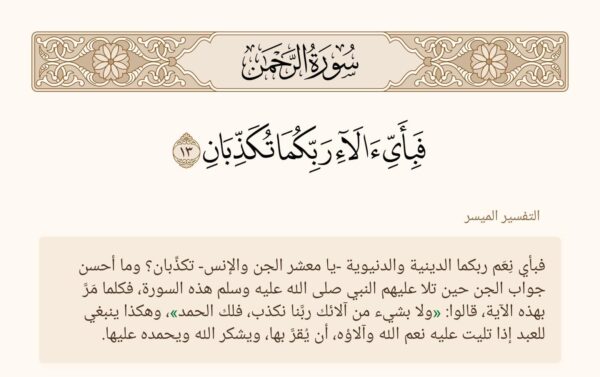 سُورَةُ الرَّحْمَٰن
فَبِأَيِّ ءَالَآءِ رَبِّكُمَا تُكَذِّبَانِ ١٣
التفسير الميسر
فبأي نِعَم ربكما الدينية والدنيوية -يا معشر الجن والإنس- تكذِّبان؟ وما أحسن
جواب الجن حين تلا عليهم النبي صلى الله عليه وسلم هذه السورة، فكلما مَرَّ
بهذه الآية، قالوا: «ولا بشيء من آلائك ربَّنا نكذب، فلك الحمد»، وهكذا ينبغي
للعبد إذا تليت عليه نعم الله وآلاؤه، أن يُقرَّ بها، ويشكر الله ويحمده عليها.